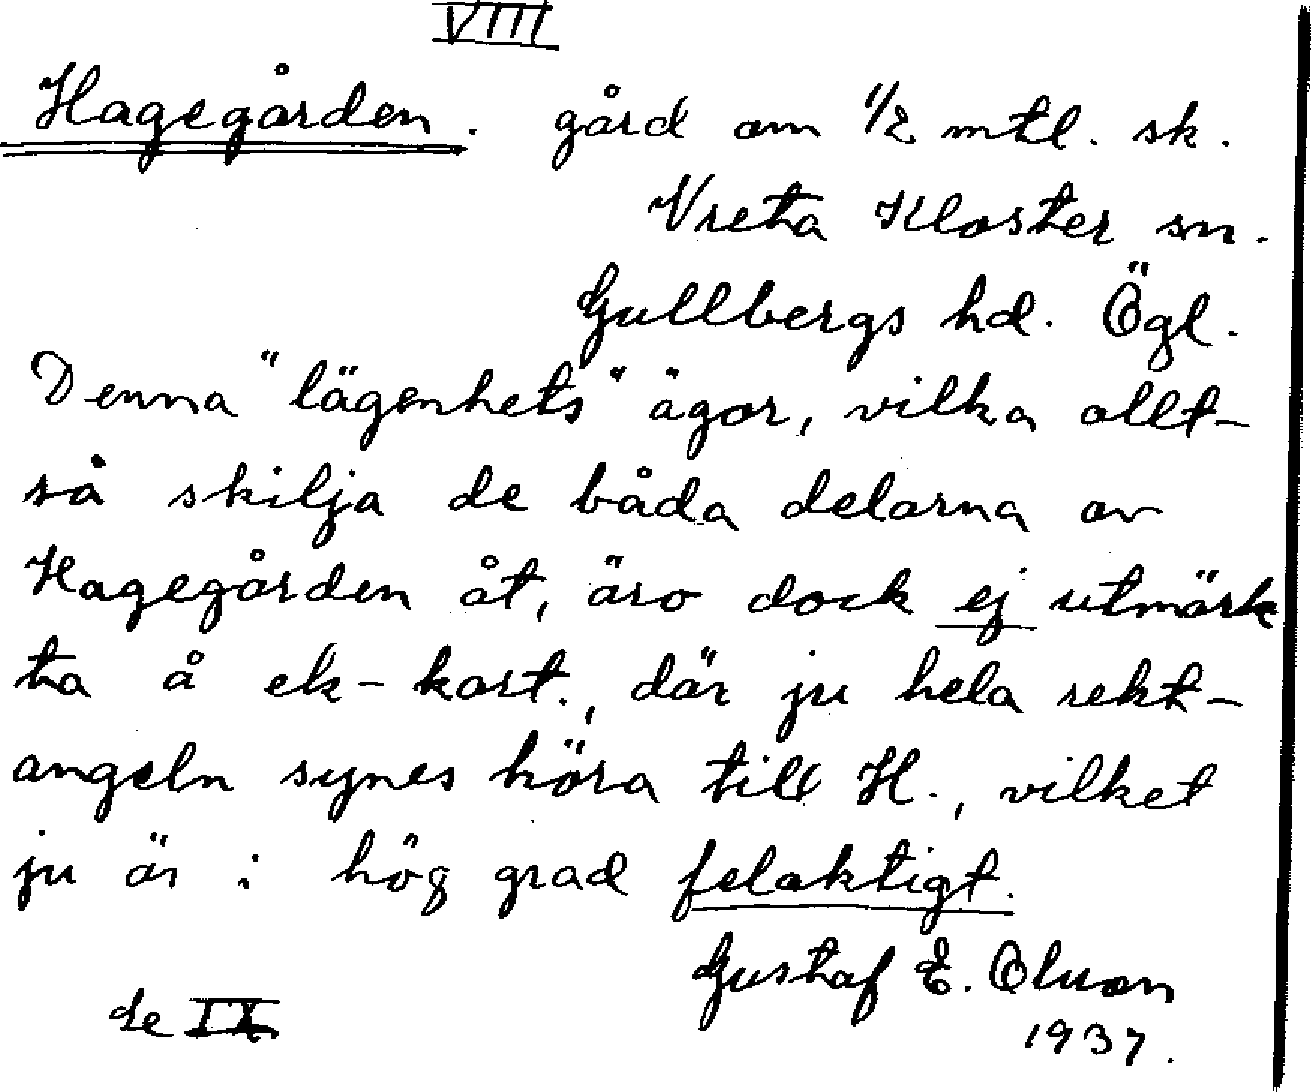 VIII
Hagegården. gård om 1/2 mtl. sk.
Vreta Kloster sn.
Gullbergs hd. Ögl.
Denna "lägenhets" ägor, vilka allt-
så skilja de båda delarna av
Hagegården åt, äro dock ej utmärk
ta å ek-kart., där ju hela rekt-
angeln synes höra till H., vilket
ju är i hög grad felaktigt.
Gustaf E. Olsson
1937.
Se IX